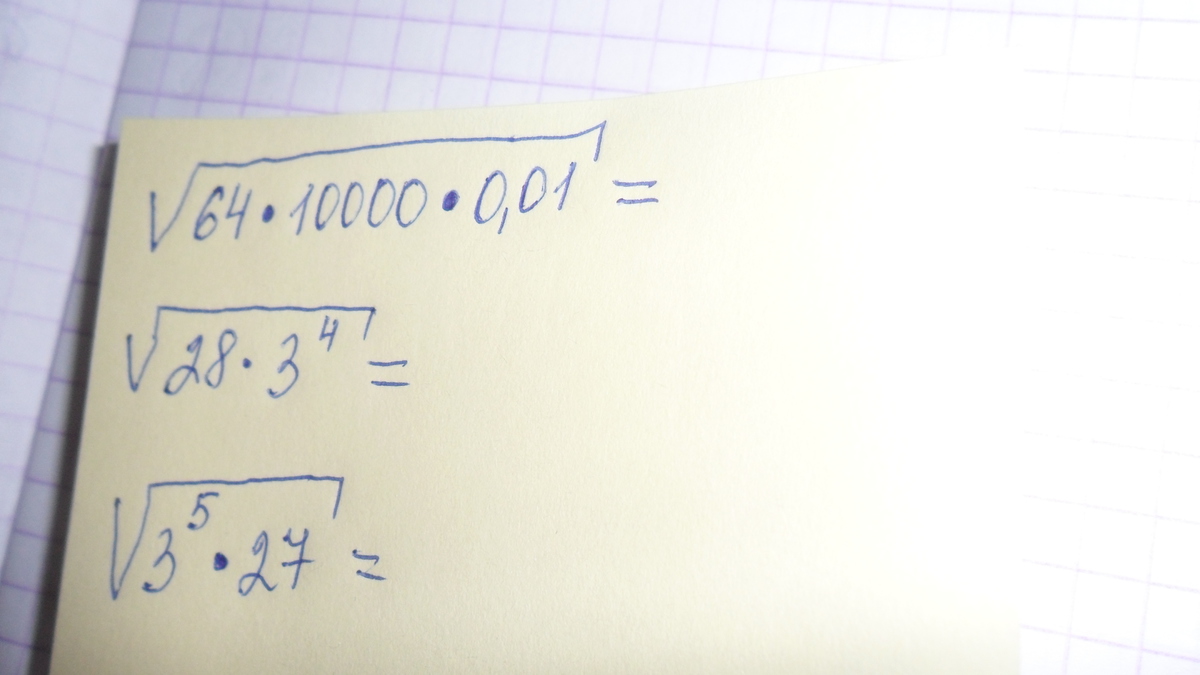 √64·10000·0,01 =
√28·3⁴ =
√3⁵·27 =